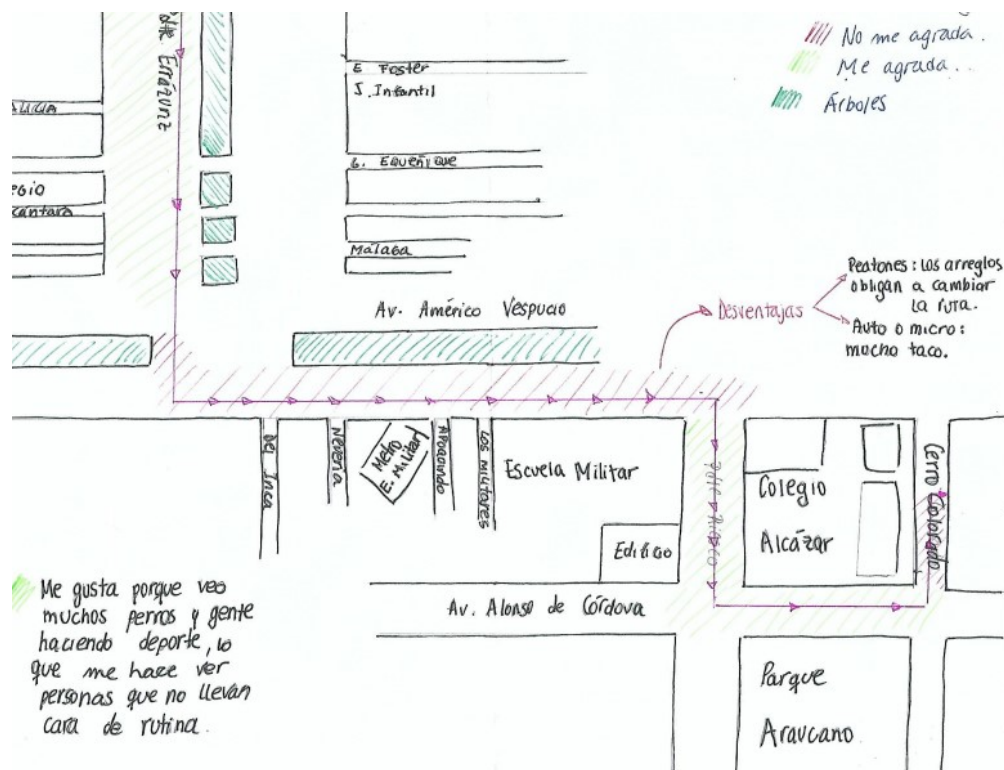 No me agrada.
Me agrada..
Árboles
Errázuriz
E Foster
S. Infantil
G. Equeñique
Málaga
Av. Américo Vespucio
Desventajas
Peatones: los arreglos
obligan a cambiar
la ruta.
Auto o micro:
mucho taco.
Del Inca
Nevería
Metro
E. Militar
Apoquindo
Los Militares
Escuela Militar
Edificio
Riesco
Colegio
Alcázar
Cerro Colorado
Av. Alonso de Córdova
Parque
Araucano
Me gusta porque veo
muchos perros y gente
haciendo deporte, lo
que me hace ver
personas que no llevan
cara de rutina.